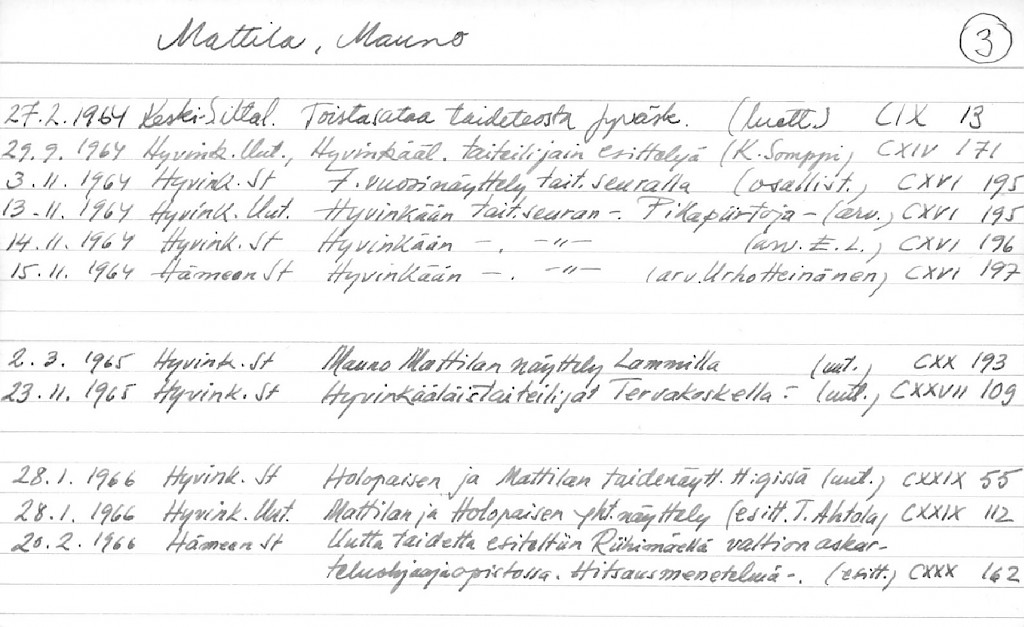 Mattila, Mauno
3
27.2.1964 Keski-Suomal. Toistasataa taideteosta Jyväsk. (luett.) CIX 13
29.9.1964 Hyvink. Uut., Hyvinkääl. taiteilijain esittelyä (K. Somppi) CXIV 171
3.11.1964 Hyvink. St 7. vuosinäyttely tait. seuralla (osallist.) CXVI 195
13.11.1964 Hyvink. Uut. Hyvinkään tait.seuran -. Pikapiirtoja - (arv.) CXVI 195
14.11.1964 Hyvink. St Hyvinkään -. -"- (arv. E.L.) CXVI 196
15.11.1964 Hämeen St Hyvinkään -. -"- (arv. Urho Heinänen) CXVI 197
2.3.1965 Hyvink. St Mauno Mattilan näyttely Lammilla (uut.) CXX 193
23.11.1965 Hyvink. St Hyvinkääläistaiteilijat Tervakoskella - (uut.) CXXVII 109
28.1.1966 Hyvink. St Holopaisen ja Mattilan taidenäytt. H:gissä (uut.) CXXIX 55
28.1.1966 Hyvink. Uut. Mattilan ja Holopaisen yht.näyttely (esitt. T. Ahtola) CXXIX 112
20.2.1966 Hämeen St Uutta taidetta esiteltiin Riihimäellä valtion askar-
teluohjaajaopistossa. Hitsausmenetelmä -. (esitt.) CXXX 162